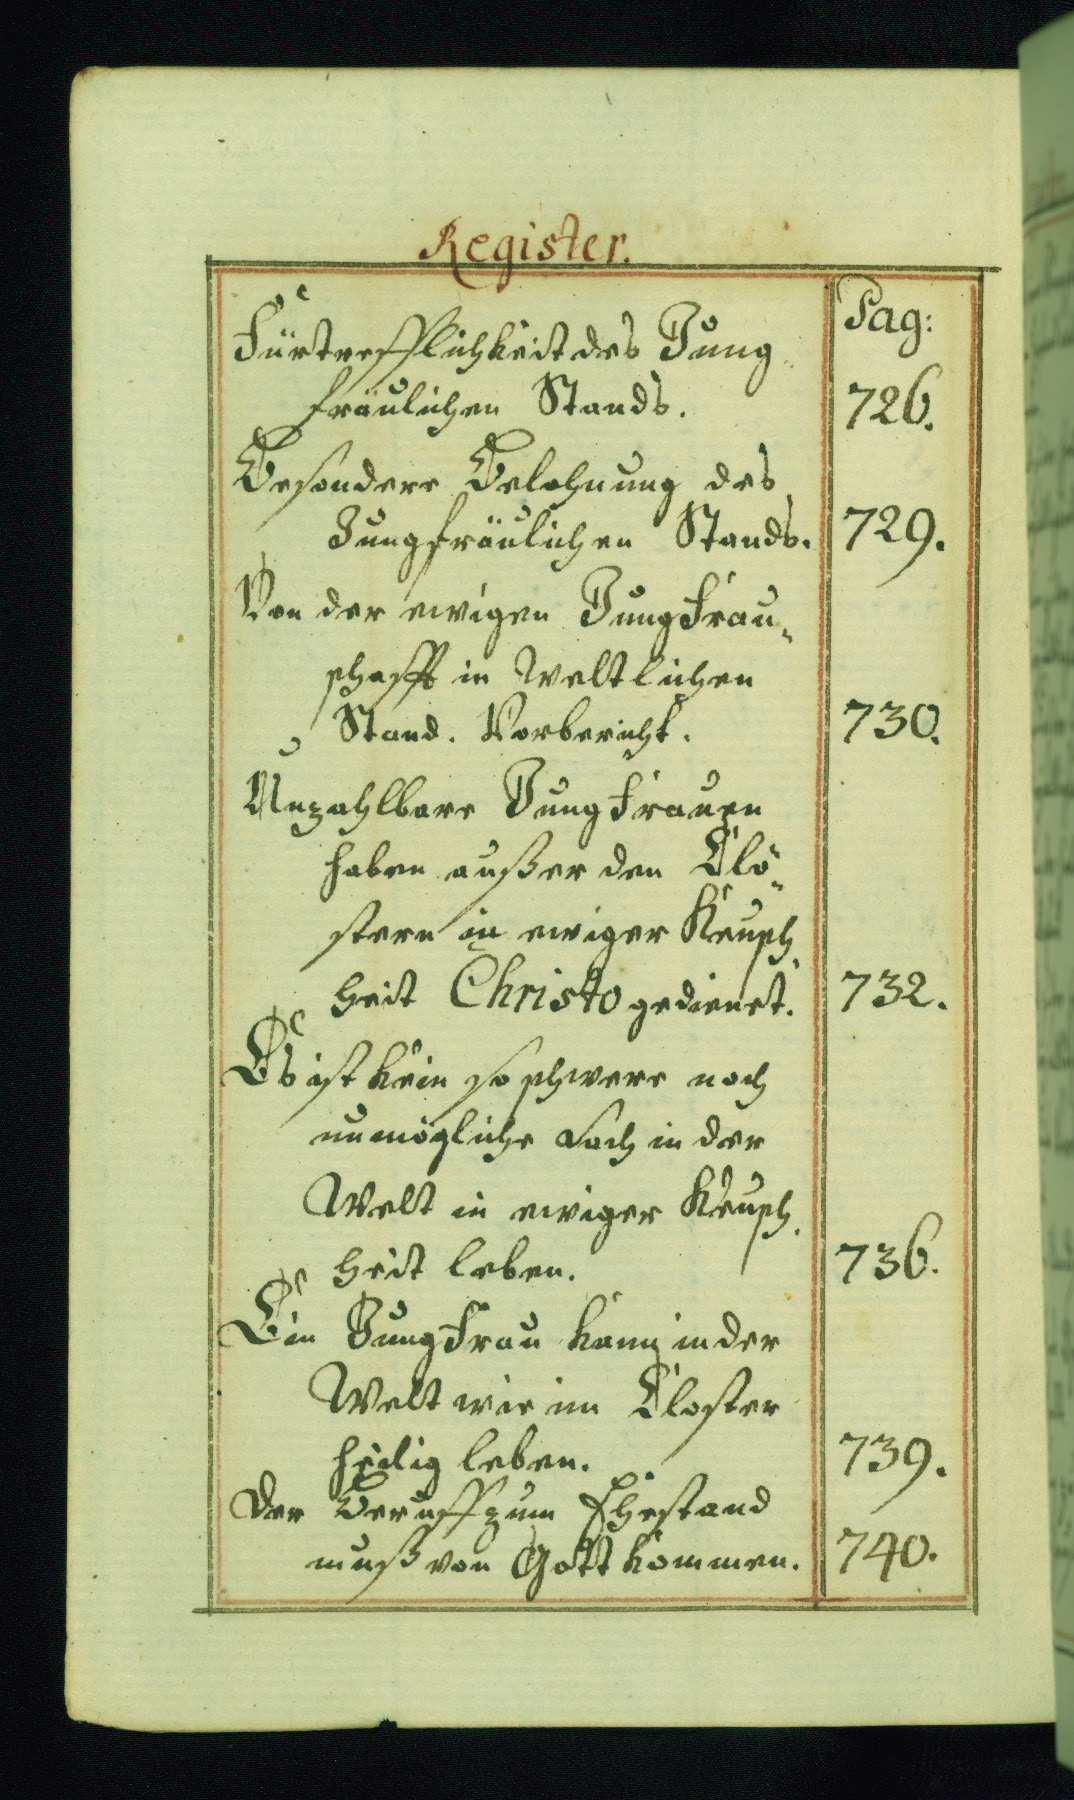 Register.
Pag:
Fürtrefflichkeit des Jung
fräulichen Stands. 726.
Besondere Belohnung des
Jungfräulichen Stands. 729.
Von der ewigen Jungfrau„
schafft in Weltlichen
Stand. Vorbericht. 730.
Unzahlbare Jungfrauen
haben außer den Clö„
stern in ewiger Keusch„
heit Christo gedienet. 732.
Es ist kein so schwere noch
unmögliche Sach in der
Welt in ewiger Keusch„
heit leben. 736.
Ein Jungfrau kann in der
Welt wie im Closter
heilig leben. 739.
Der Beruff zum Ehestand
muß von Gott kommen. 740.